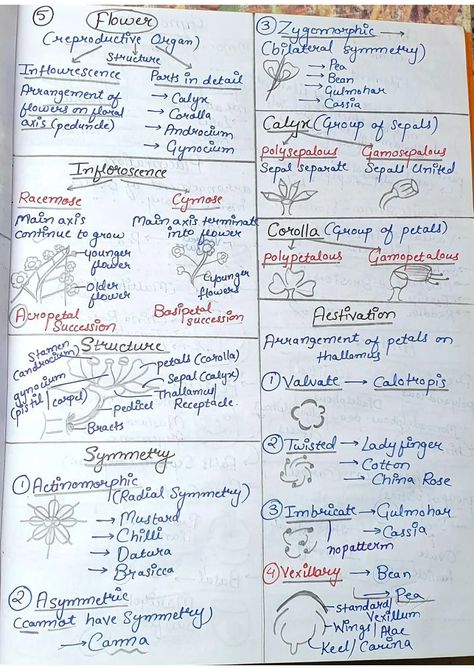 5 Flower
(reproductive Organ)
Structure
Inflourescence
Arrangement of
flowers on floral
axis (peduncle)
Parts in detail
→ Calyx
→ Corolla
→ Androcium
→ Gynocium
Infloroscence
Racemose
Main axis
continue to grow
younger
flower
older
flower
① Acropetal
Succession
Cymose
Main axis terminate
into flower
younger
flowers
Basipetal
succession
Structure
Stamen
(androcium)
gynocium
(pistil / carpel)
petals (corolla)
Sepal (Calyx)
Thallamus/
Receptacle
pedicel
Bracts
Symmetry
① Actinomorphic
(Radial Symmetry)
→ Mustard
→ Chilli
→ Datura
→ Brasicca
② Asymmetric
(cannot have symmetry)
→ Canna
③ Zygomorphic →
(bilateral symmetry)
→ Pea
→ Bean
→ Gulmohar
→ Cassia
Calyx (Group of Sepals)
polysepalous
Sepal separate
Gamosepalous
Sepall United
Corolla (Group of petals)
polypetalous
Gamopetalous
Aestivation
Arrangement of petals on
thallemus
① Valvate → Calotropis
② Twisted → Lady finger
→ Cotton
→ China Rose
③ Imbricate → Gulmohar
→ Cassia
no patterm
④ Vexillary → Bean
→ Pea
Standard/
Vexillum
Wings/ Alae
Keel/ Carina